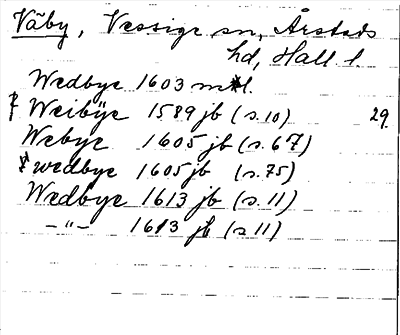 Väby, Vessige sn, Årstads
hd, Hall. l.
Wedbye 1603 mtl.
Weibÿe 1589 jb (s.10) 29.
Webye 1605 jb (s.67)
wedbye 1605 jb (s.75)
Wedbye 1613 jb (s.11)
-"- 1613 jb (s 11)